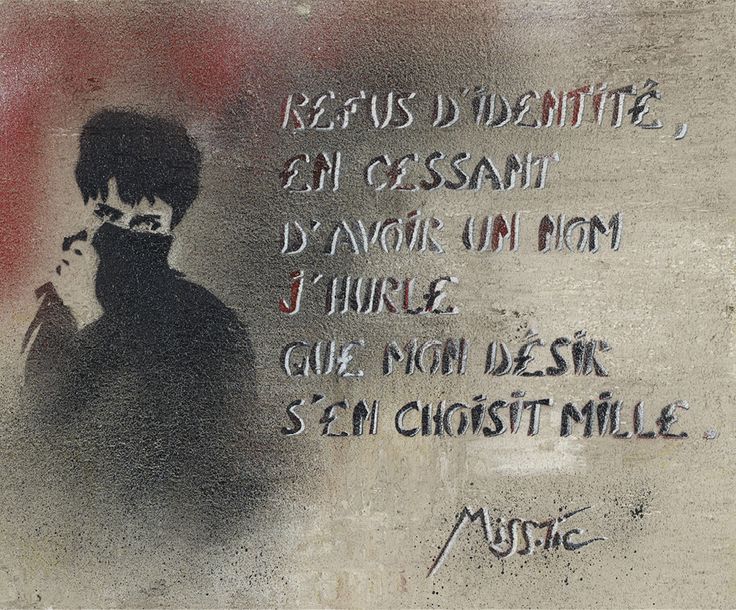 REFUS D'IDENTITÉ,
EN CESSANT
D'AVOIR UN NOM
J'HURLE
QUE MON DÉSIR
S'EN CHOISIT MILLE.
Miss.Tic